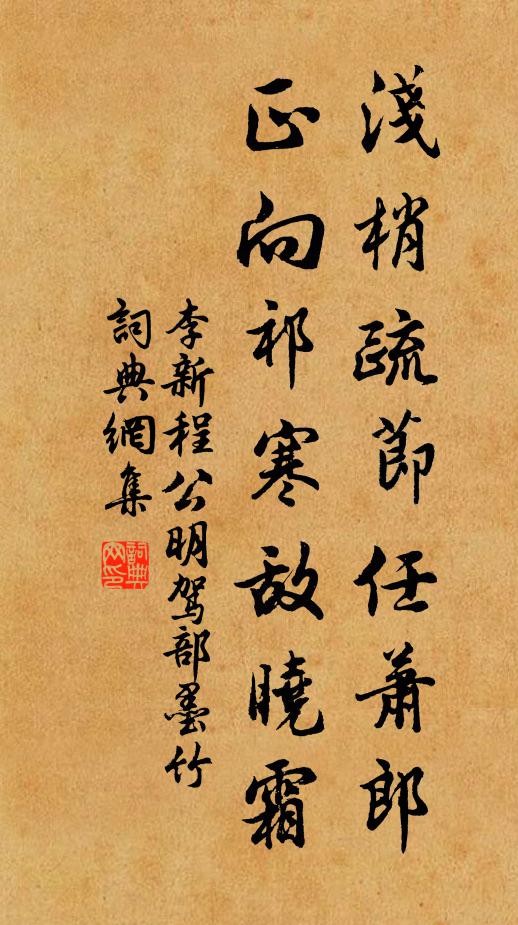 淺梢疏節任蕭郎
正向祁寒敵曉霜
李新程公明駕部墨竹
詞典網集
詞典
网印